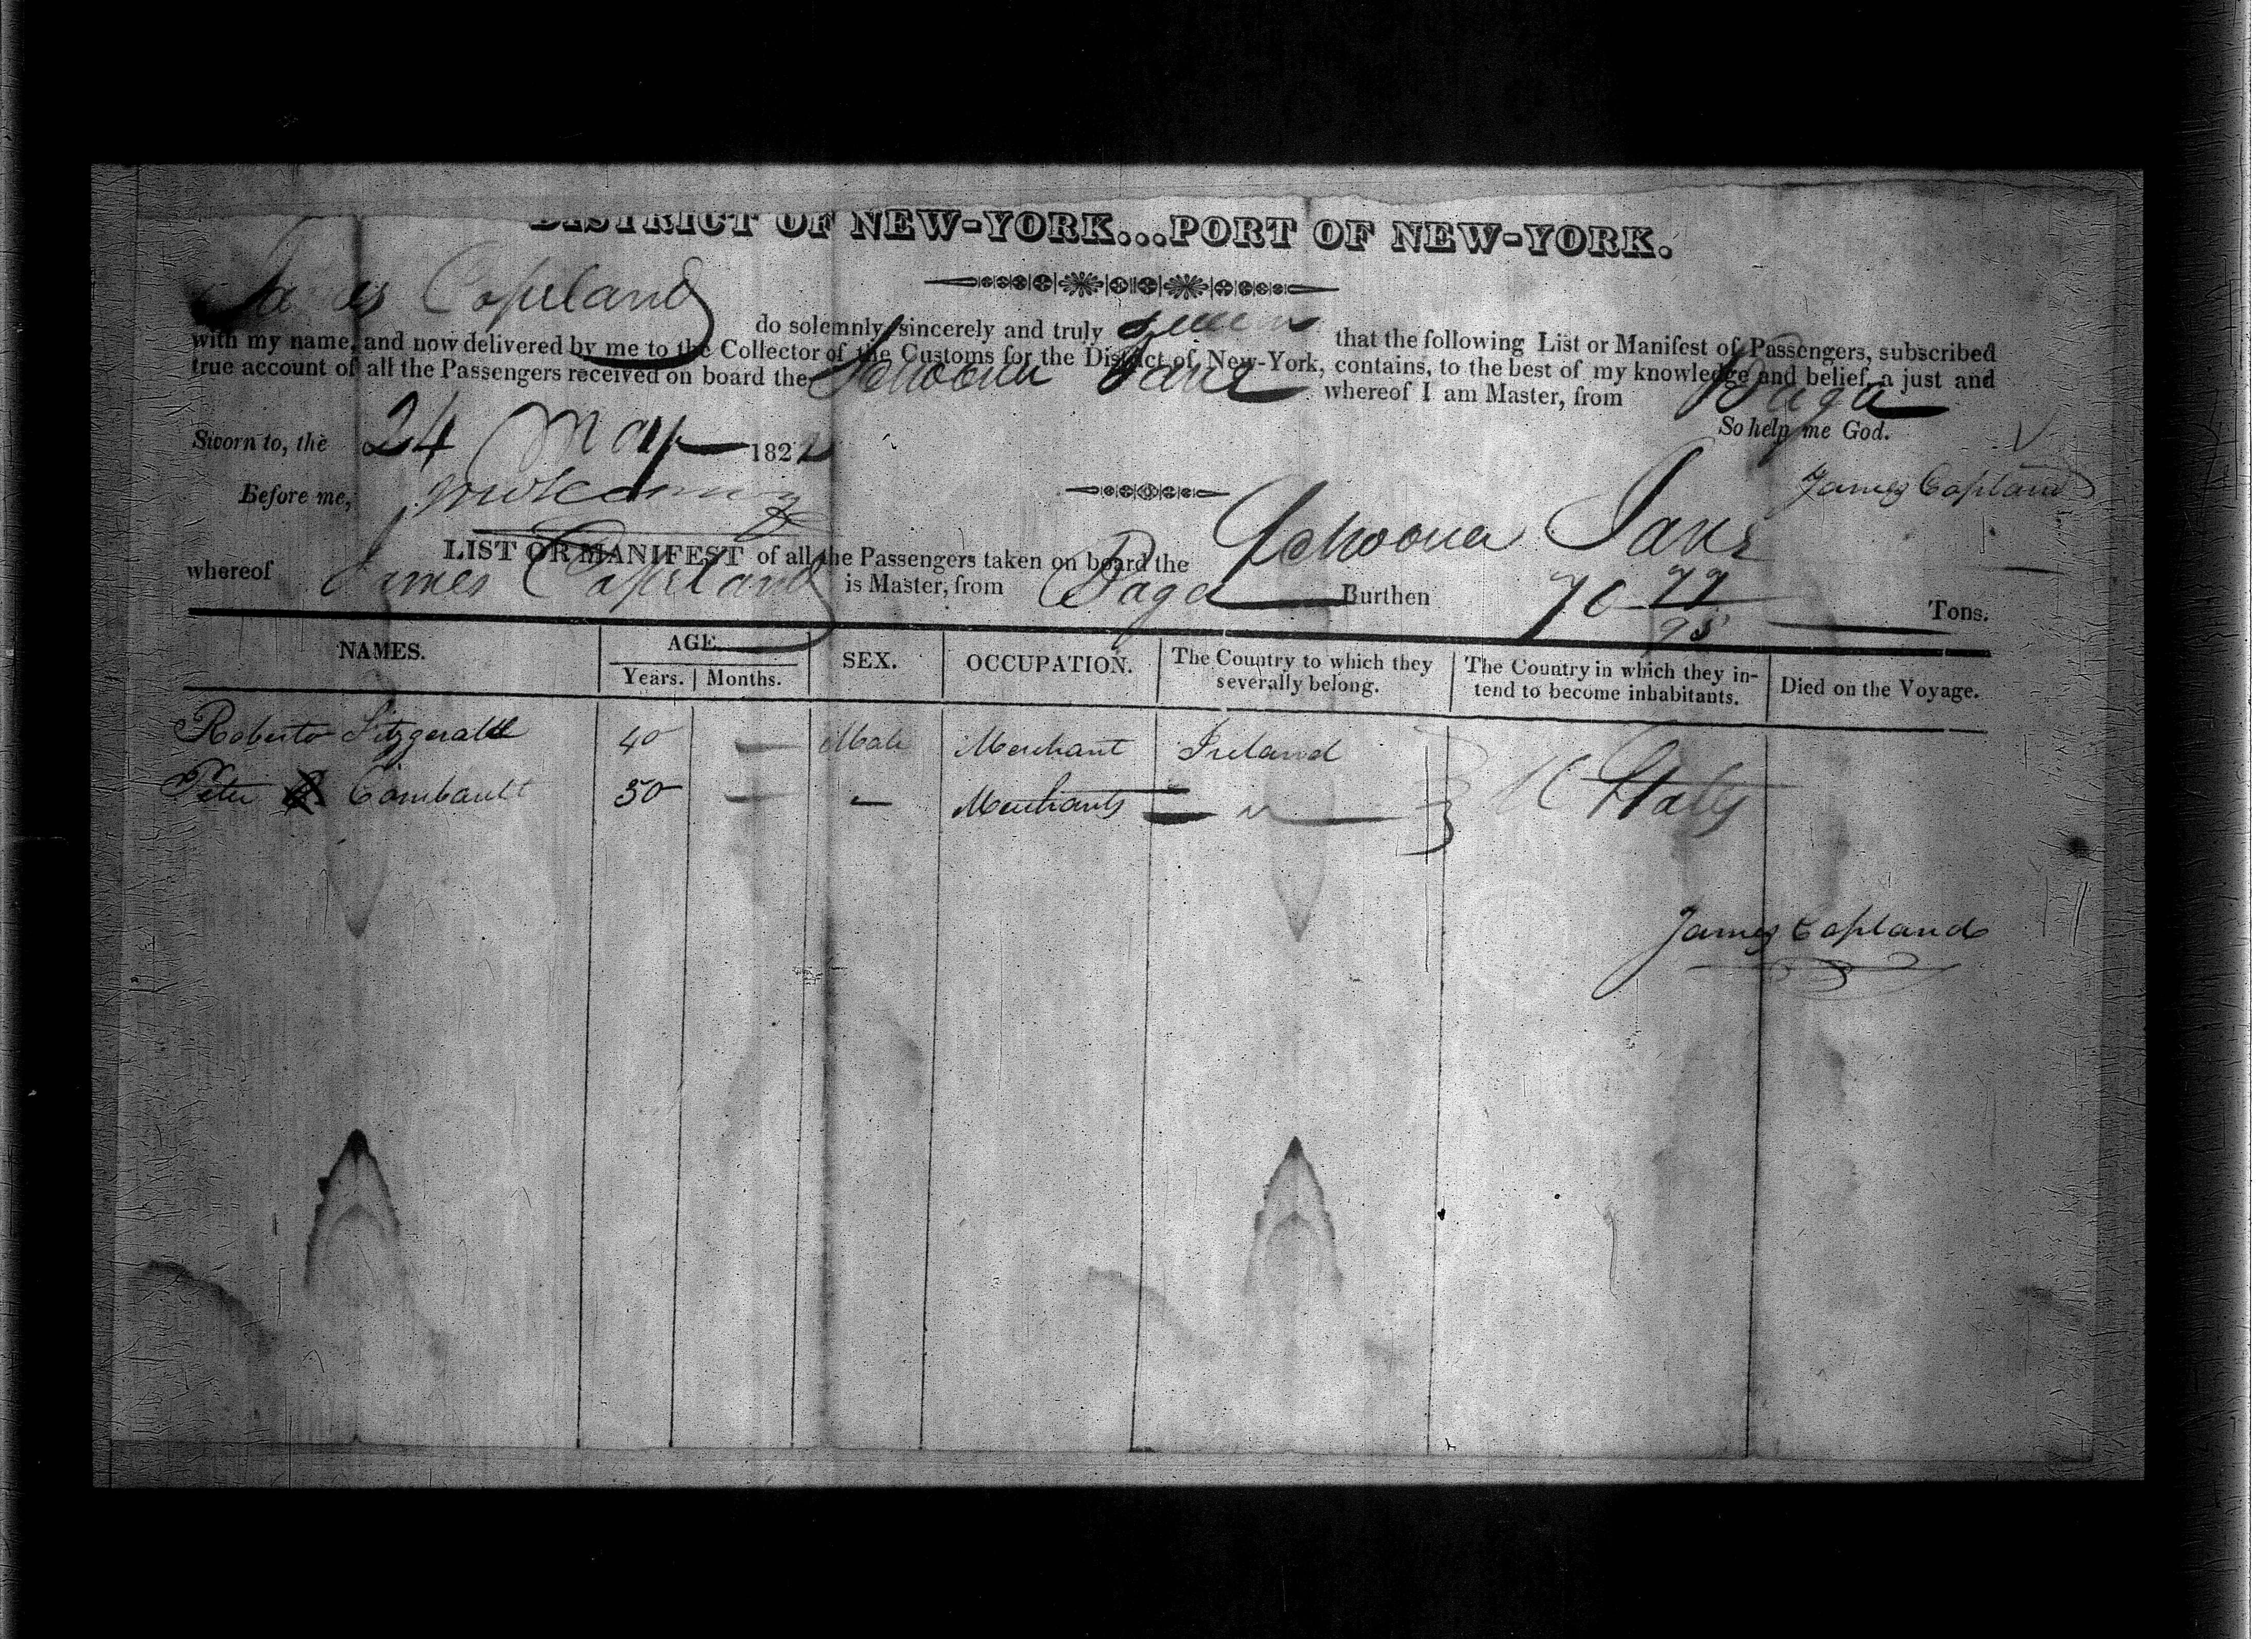 DISTRICT OF NEW-YORK...PORT OF NEW-YORK.
James Copeland do solemnly, sincerely and truly swear that the following List or Manifest of Passengers, subscribed
with my name, and now delivered by me to the Collector of the Customs for the District of New-York, contains, to the best of my knowledge and belief, a just and
true account of all the Passengers received on board the Schooner Jane whereof I am Master, from
So help me God.
Sworn to, the 24 May 1822
James Copland
Before me,
LIST OR MANIFEST of all the Passengers taken on board the Schooner Jane
whereof James Copeland is Master, from Burthen 70 77/95 Tons.
NAMES. AGE. SEX. OCCUPATION. The Country to which they severally belong. The Country in which they intend to become inhabitants. Died on the Voyage.
Years. Months.
Roberto Fitzgerald 40 — Male Merchant Ireland
Peter Combault 50 — — Merchants — " — U States
James Copland